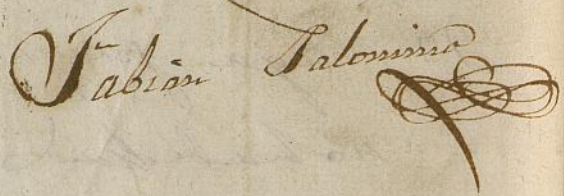 Fabian Palomino